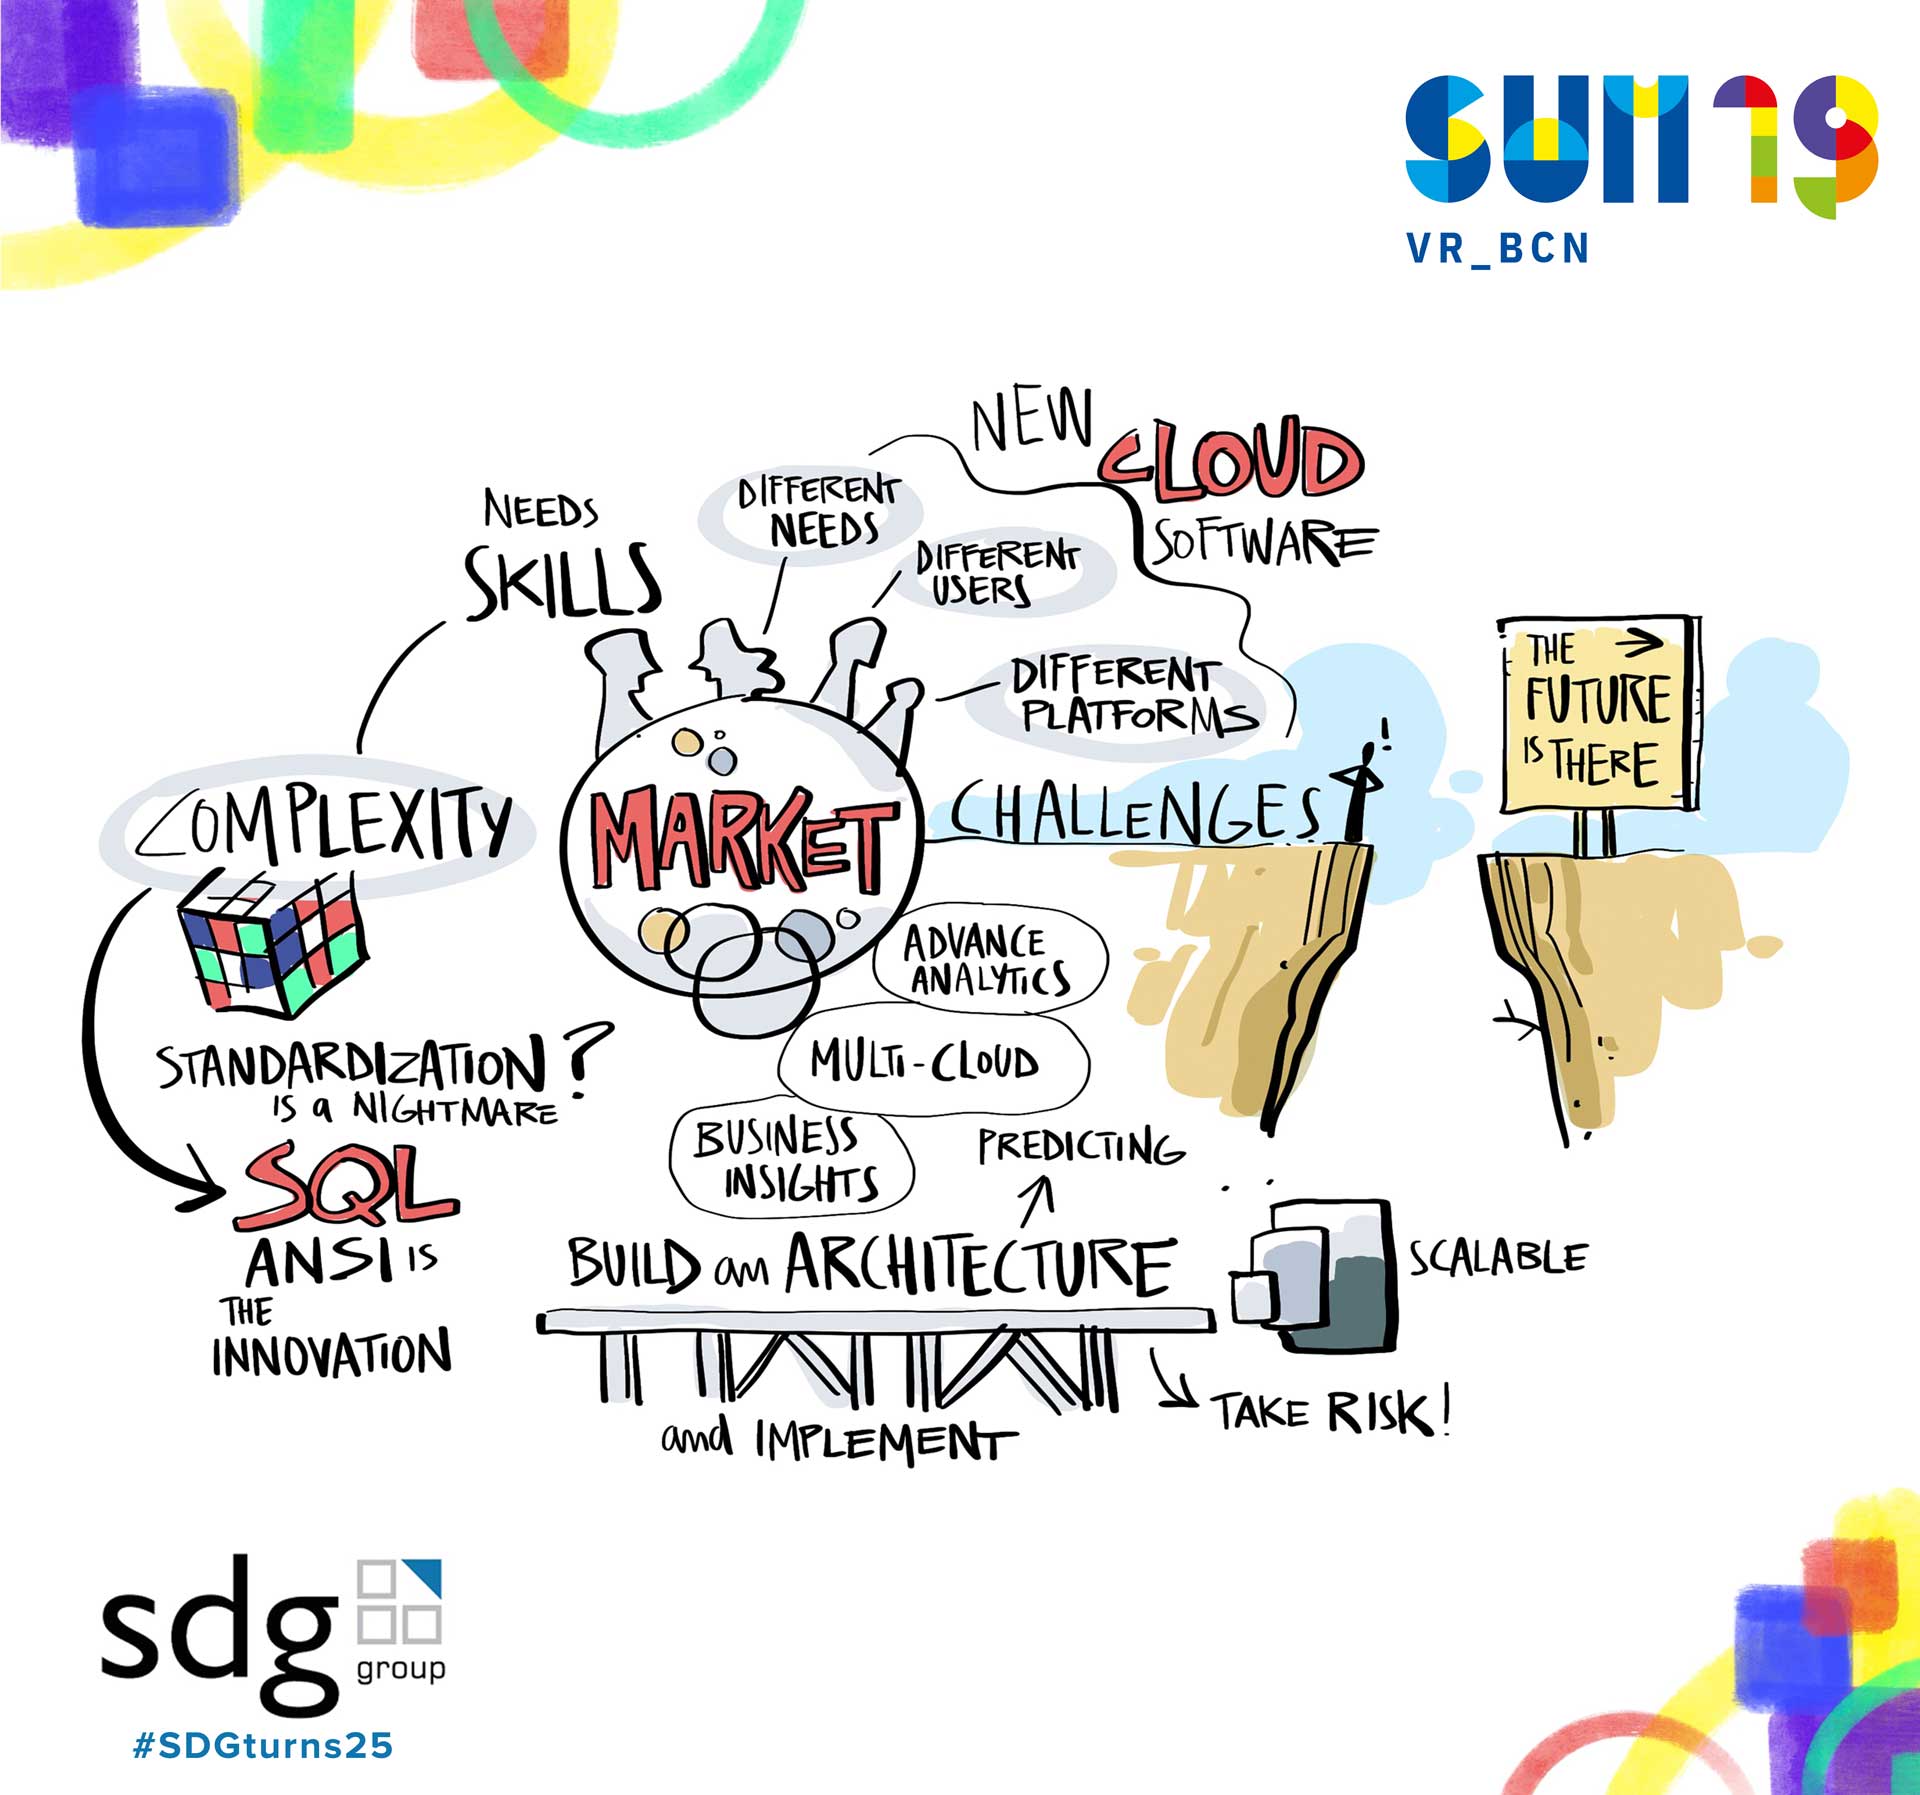 SUM19
VR_BCN
NEW
CLOUD
SOFTWARE
NEEDS
SKILLS
DIFFERENT
NEEDS
DIFFERENT
USERS
DIFFERENT
PLATFORMS
COMPLEXITY
MARKET
CHALLENGES
!
THE →
FUTURE
IS THERE
ADVANCE
ANALYTICS
MULTI-CLOUD
BUSINESS
INSIGHTS
STANDARDIZATION?
IS a NIGHTMARE
SQL
ANSI IS
THE
INNOVATION
PREDICTING
BUILD an ARCHITECTURE
and IMPLEMENT
SCALABLE
TAKE RISK!
sdg
group
#SDGturns25